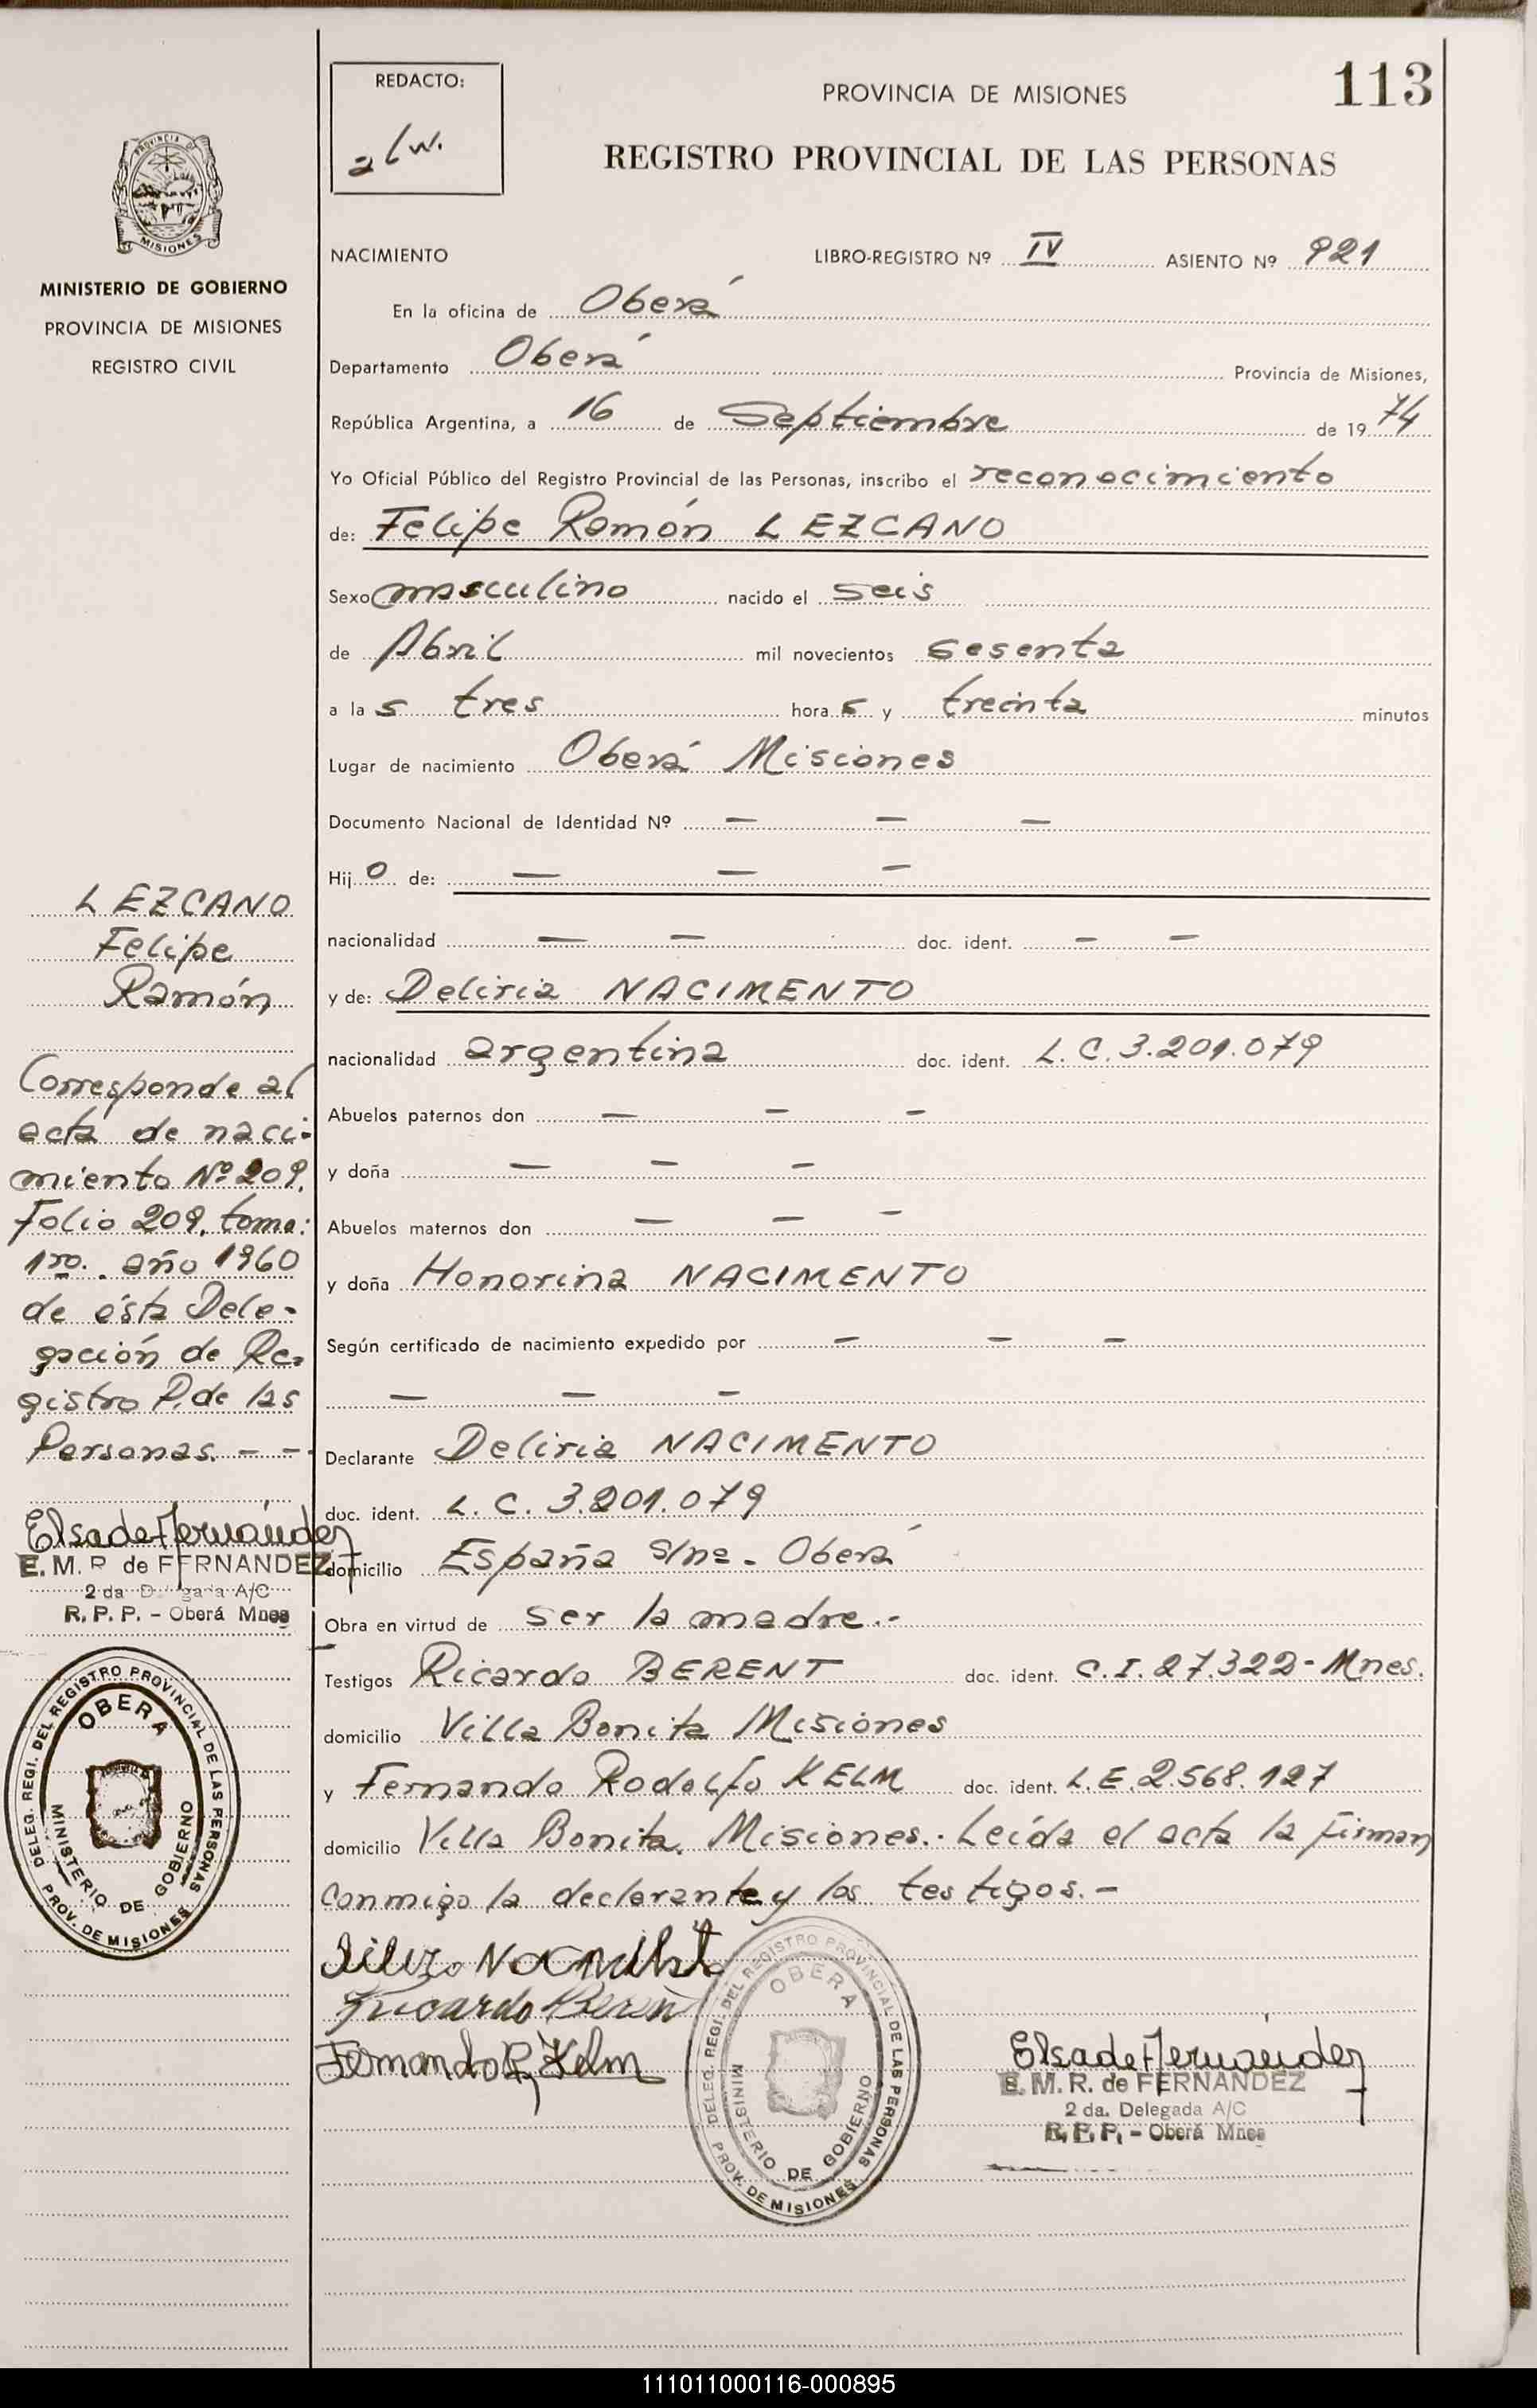 113
REDACTO:
alw.
PROVINCIA DE MISIONES
REGISTRO PROVINCIAL DE LAS PERSONAS
PROVINCIA DE
MISIONES
MINISTERIO DE GOBIERNO
PROVINCIA DE MISIONES
REGISTRO CIVIL
NACIMIENTO LIBRO-REGISTRO Nº IV ASIENTO Nº 921
En la oficina de Oberá
Departamento Oberá Provincia de Misiones,
República Argentina, a 16 de Septiembre de 19 74
Yo Oficial Público del Registro Provincial de las Personas, inscribo el reconocimiento
de: Felipe Ramón LEZCANO
Sexo masculino nacido el seis
de Abril mil novecientos sesenta
a la s tres hora s y treinta minutos
Lugar de nacimiento Oberá Misiones
Documento Nacional de Identidad Nº — — —
Hij o de: — — —
nacionalidad — — doc. ident. — —
y de: Deliria NACIMENTO
nacionalidad argentina doc. ident. L.C. 3.201.079
Abuelos paternos don — — —
y doña — — —
Abuelos maternos don — — —
y doña Honorina NACIMENTO
Según certificado de nacimiento expedido por — — —
— — —
Declarante Deliria NACIMENTO
doc. ident. L.C. 3.201.079
domicilio España s/nº - Oberá
Obra en virtud de ser la madre.-
Testigos Ricardo BERENT doc. ident. C.I. 27.322- Mnes.
domicilio Villa Bonita Misiones
y Fernando Rodolfo KELM doc. ident. L.E. 2.568.127
domicilio Villa Bonita, Misiones.- Leída el acta la firman
conmigo la declarante y los testigos.-
Ricardo Beren
Fernando R. Kelm
Elsa de Fernández
E. M. R. de FERNANDEZ
2 da. Delegada A/C
R. P. P. - Oberá Mnes
DELEG. REGI. DEL REGISTRO PROVINCIAL DE LAS PERSONAS
OBERA
MINISTERIO DE GOBIERNO
PROV. DE MISIONES
LEZCANO
Felipe
Ramón
Corresponde al
acta de naci-
miento Nº 209,
Folio 209, tomo:
1ro. año 1960
de ésta Dele-
gación de Re-
gistro P. de las
Personas. - -
Elsa de Fernández
E. M. R. de FERNANDEZ
2 da Delegada A/C
R. P. P. - Oberá Mnes
DELEG. REGI. DEL REGISTRO PROVINCIAL DE LAS PERSONAS
OBERA
MINISTERIO DE GOBIERNO
PROV. DE MISIONES
111011000116-000895